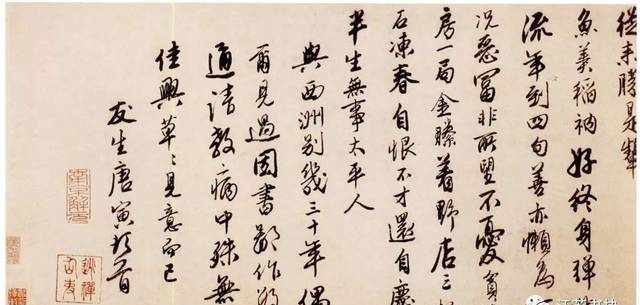 魚羹稻衲好終身彈
流年到四旬善亦懶為
况惡富非所望不憂貧
房一局金縢着野店三
石凍春自恨不才還自慶
半生無事太平人
與西洲別幾三十年偶
爾見過因書鄙作
請教病中殊無
佳興草〻見意而已
友生唐寅頓首
南京解元